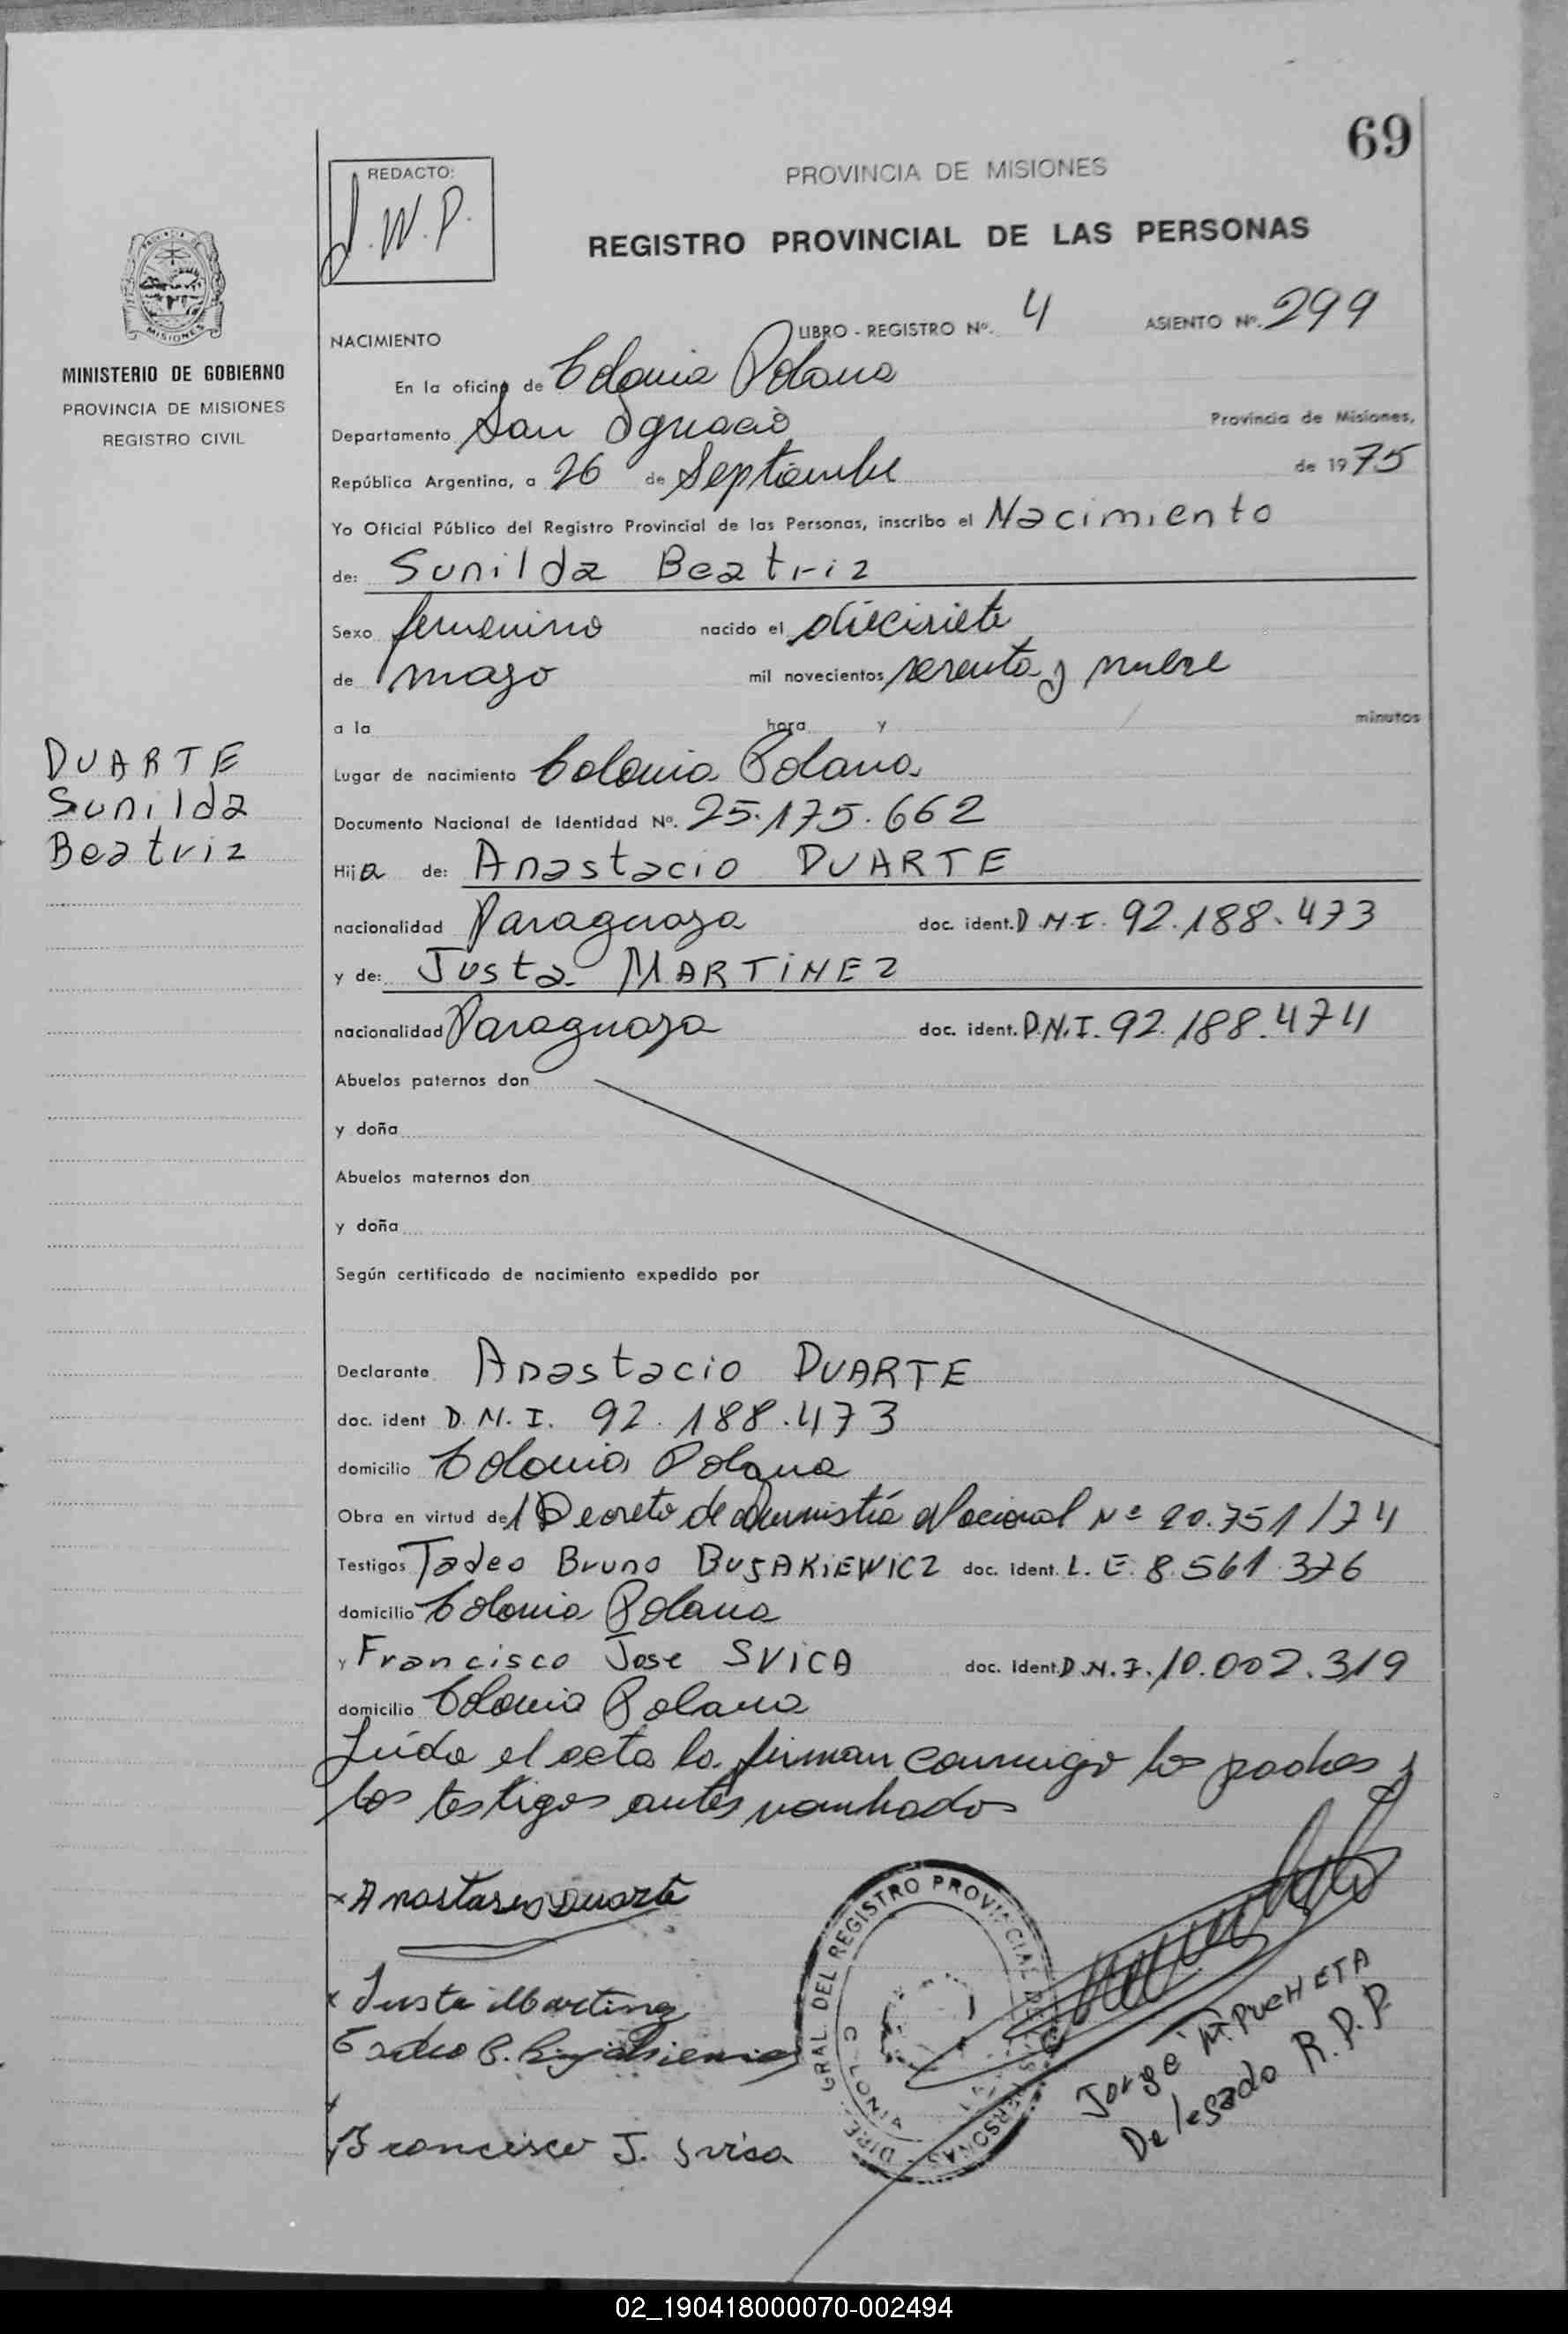 69
REDACTO:
J.W.P.
PROVINCIA DE MISIONES
REGISTRO PROVINCIAL DE LAS PERSONAS
MISIONES
MINISTERIO DE GOBIERNO
PROVINCIA DE MISIONES
REGISTRO CIVIL
NACIMIENTO LIBRO - REGISTRO Nº. 4 ASIENTO Nº. 299
En la oficina de Colonia Polana
Departamento San Ignacio Provincia de Misiones,
República Argentina, a 26 de Septiembre de 1975
Yo Oficial Público del Registro Provincial de las Personas, inscribo el Nacimiento
de: Sunilda Beatriz
Sexo femenino nacido el diecisiete
de mayo mil novecientos sesenta y nueve
a la hora y minutos
DUARTE
Sunilda
Beatriz
Lugar de nacimiento Colonia Polana
Documento Nacional de Identidad Nº. 25.175.662
Hija de: Anastacio DUARTE
nacionalidad Paraguaya doc. ident. D.N.I. 92.188.473
y de: Justa MARTINEZ
nacionalidad Paraguaya doc. ident. D.N.I. 92.188.474
Abuelos paternos don
y doña
Abuelos maternos don
y doña
Según certificado de nacimiento expedido por
Declarante Anastacio DUARTE
doc. ident D.N.I. 92.188.473
domicilio Colonia Polana
Obra en virtud del Decreto de Amnistía Nacional Nº 20.751/74
Testigos Tadeo Bruno BUJAKIEWICZ doc. ident. L.E. 8.561.376
domicilio Colonia Polana
y Francisco Jose SVICA doc. ident D.N.I. 10.002.319
domicilio Colonia Polana
Leída el acta la firman conmigo los padres y
los testigos antes nombrados
x Anastasio Duarte
x Justa Martinez
Tadeo B.
Francisco J. Svica
DIREC. GRAL. DEL REGISTRO PROVINCIAL DE LAS PERSONAS
Jorge
Delegado R.P.P.
02_190418000070-002494